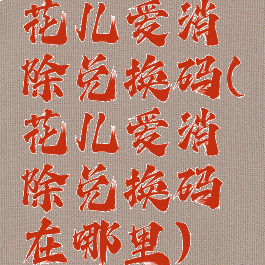 花儿爱消
除兑换码(
花儿爱消
除兑换码
在哪里)